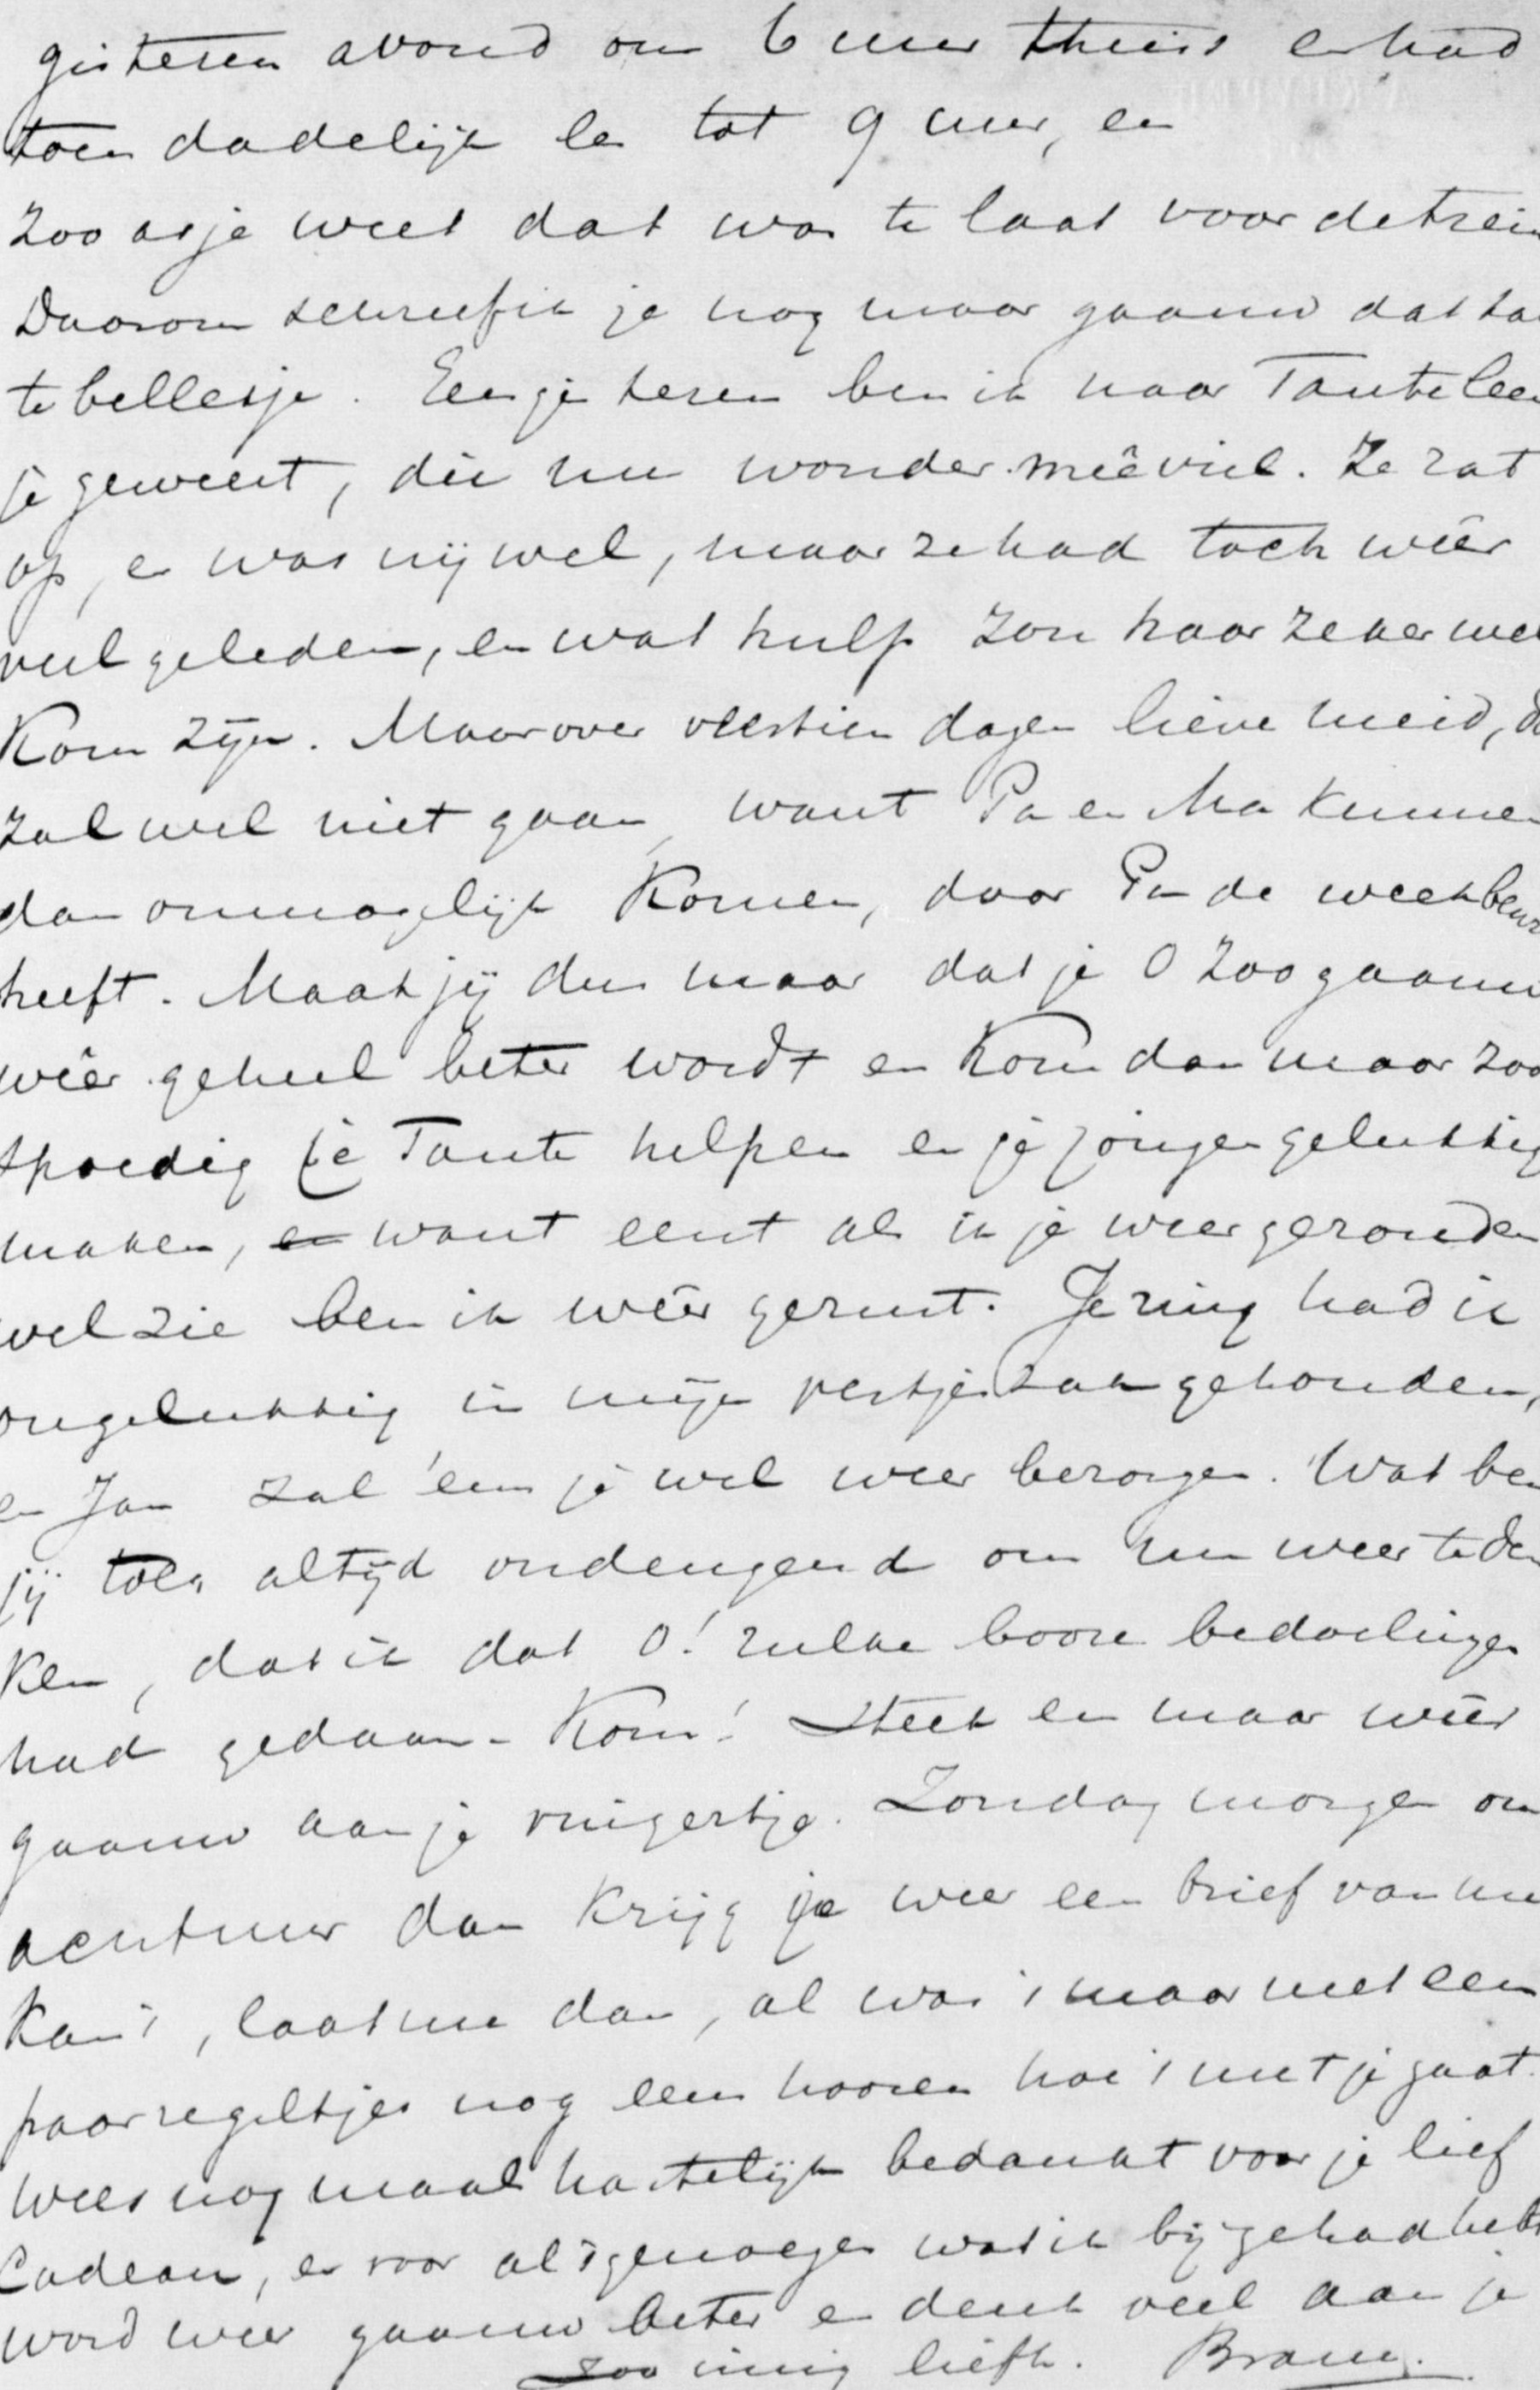 gisteren avond om 6 uur thuis en had
toen dadelijk les tot 9 uur, en
zooals je weet dat was te laat voor de trein
Daarom schreef ik je nog maar gaauw dat
te belletje. Eergisteren ben ik naar Tante Leen
je geweest, die me wonder meêviel. Ze zat
op, en was vrij wel, maar ze had toch wéér
veel geleden, en wat hulp zou haar zeker wel
Kom zijn. Maar over veertien dagen lieve meid, d
zal wel niet gaan, want Pa en Ma kunnen
dan onmogelijk Komen, daar Pa de weekbeur
heeft. Maak jij dus maar dat je O zoo gaauw
wéér geheel beter wordt en Kom dan maar zoo
spoedig je Tante helpen en je jongen gelukkig
maken, en want eerst als ik je weer gezond en
wel zie ben ik wéér gerust. Je ring had ik
ongelukkig in mijn vestjeszak gehouden,
en Jan zal 'em je wel weer bezorgen. Wat ben
jij toch altijd ondeugend om nu weer te den
Ken, dat ik dat O! zulke booze bedoelingen
had gedaan. Kom! steek em maar wéér
gaauw aan je vingertje. Zondag morgen om
acht uur dan krijg je weer een brief van me
Kan 't, laat me dan, al was 't maar met een
paar regeltjes nog eens hooren hoe 't met je gaat.
Wees nogmaals hartelijk bedankt voor je lief
Cadeau, en voor al 't genoegen wat ik bij je gehad heb
word weer gaauw beter en denk veel aan je
zoo innig liefh. Bram.